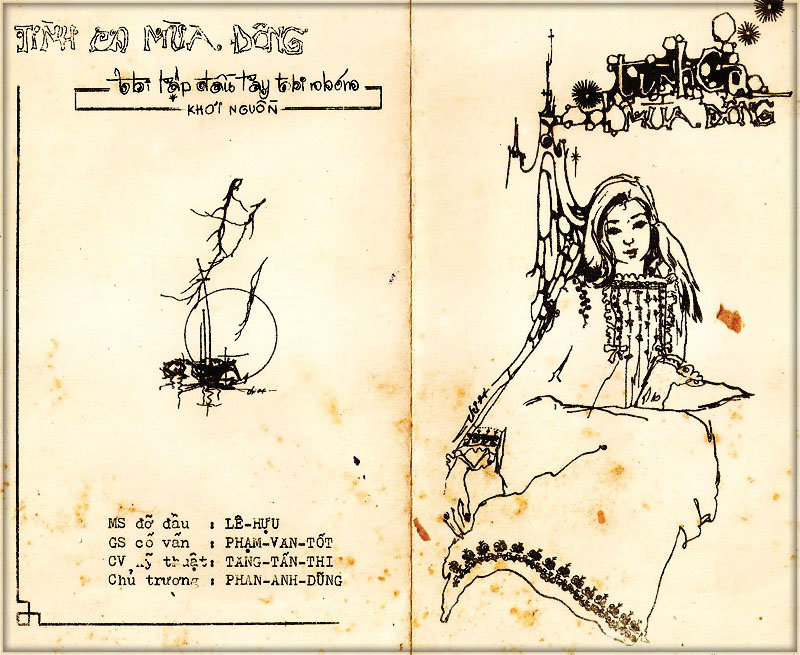 TÌNH CA MÙA ĐÔNG
thi tập đầu tay thi nhóm
KHƠI NGUỒN
MS đỡ đầu : LÊ-HỰU
GS cố vấn : PHẠM-VĂN-TỐT
CV kỹ thuật: TĂNG-TẤN-THI
Chủ trương : PHAN-ANH-DŨNG
tình ca
MÙA ĐÔNG